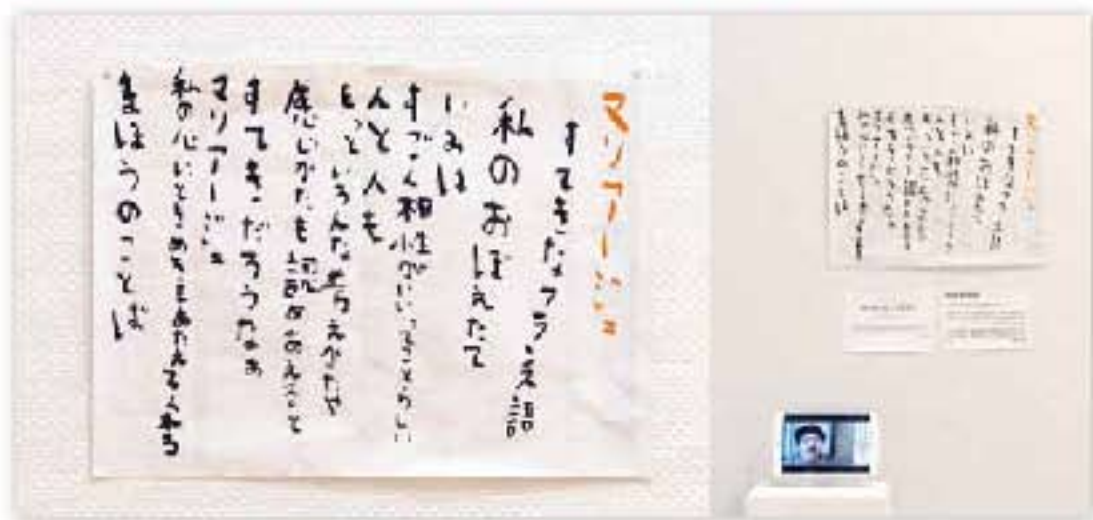 マリアージュ
すてきなフランス語
私のおぼえたて
いみは
すごく相性がいいってことらしい
人と人も
もっといろんな考えかたや
感じかたも認めあえると
すてきだろうなぁ
マリアージュ
私の心にときめきをあたえてくれる
まほうのことば